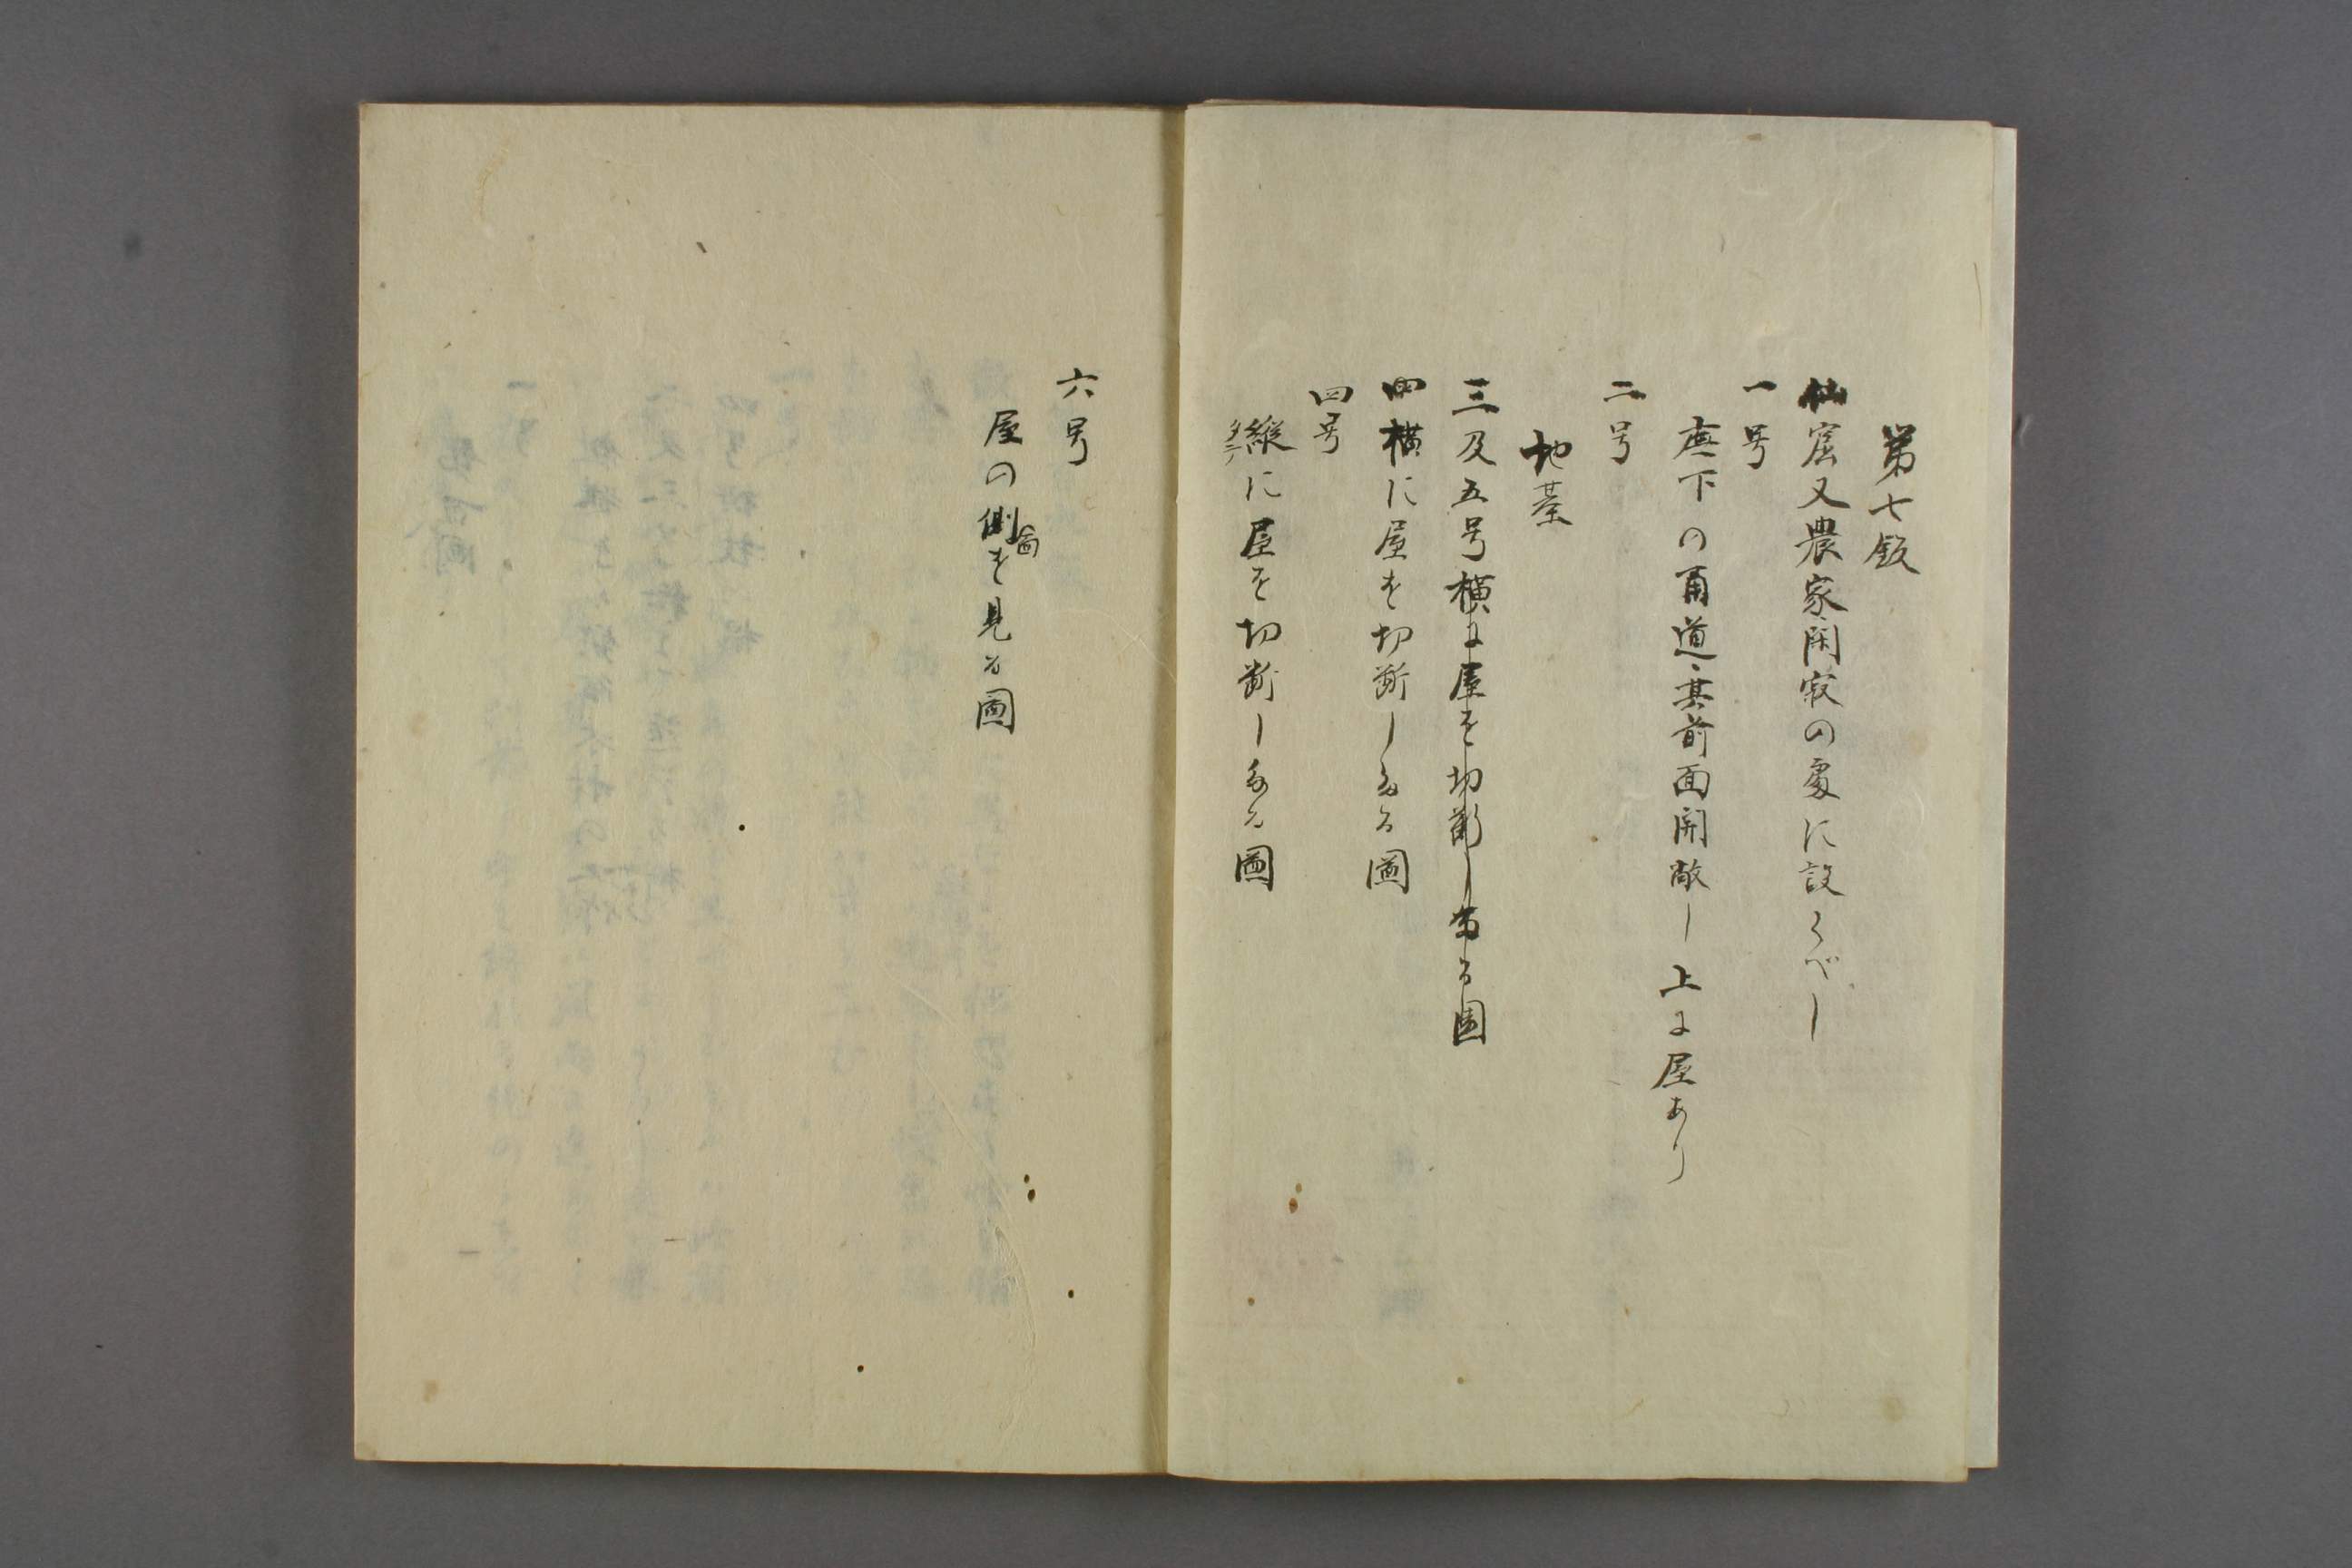 第七版
仙窟又農家閑寂の處に設くべし
一号
廡下の甬道其前面開敞し上に屋あり
二号
地基
三及五号横に屋を切断したる圖
横に屋を切断したる圖
四号
縦に屋を切断したる圖
タテ
六号
屋の側面を見る圖